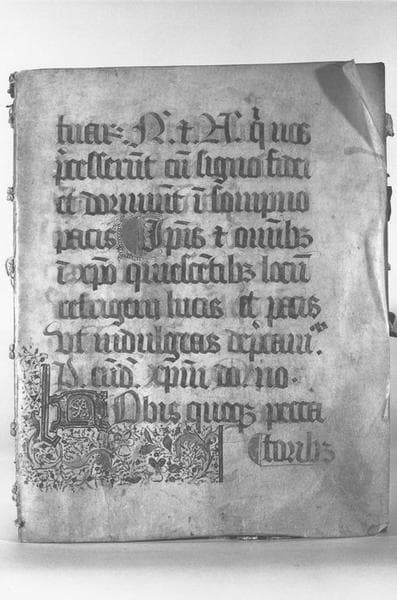 tuaꝝ N. ⁊ N. q̇ nos
p̄cesserūt cū signo fidei
et dormiūt ī sompno
pacis Ip̄is ⁊ om̄ibꝫ
ī xp̄o quiescētibꝫ locū
refrigerij lucis et pacis
vt indulgeas dep̄cam̄.
P. eūd̄. xp̄m do. no.
NObis quoqꝫ pecca
toribꝫ